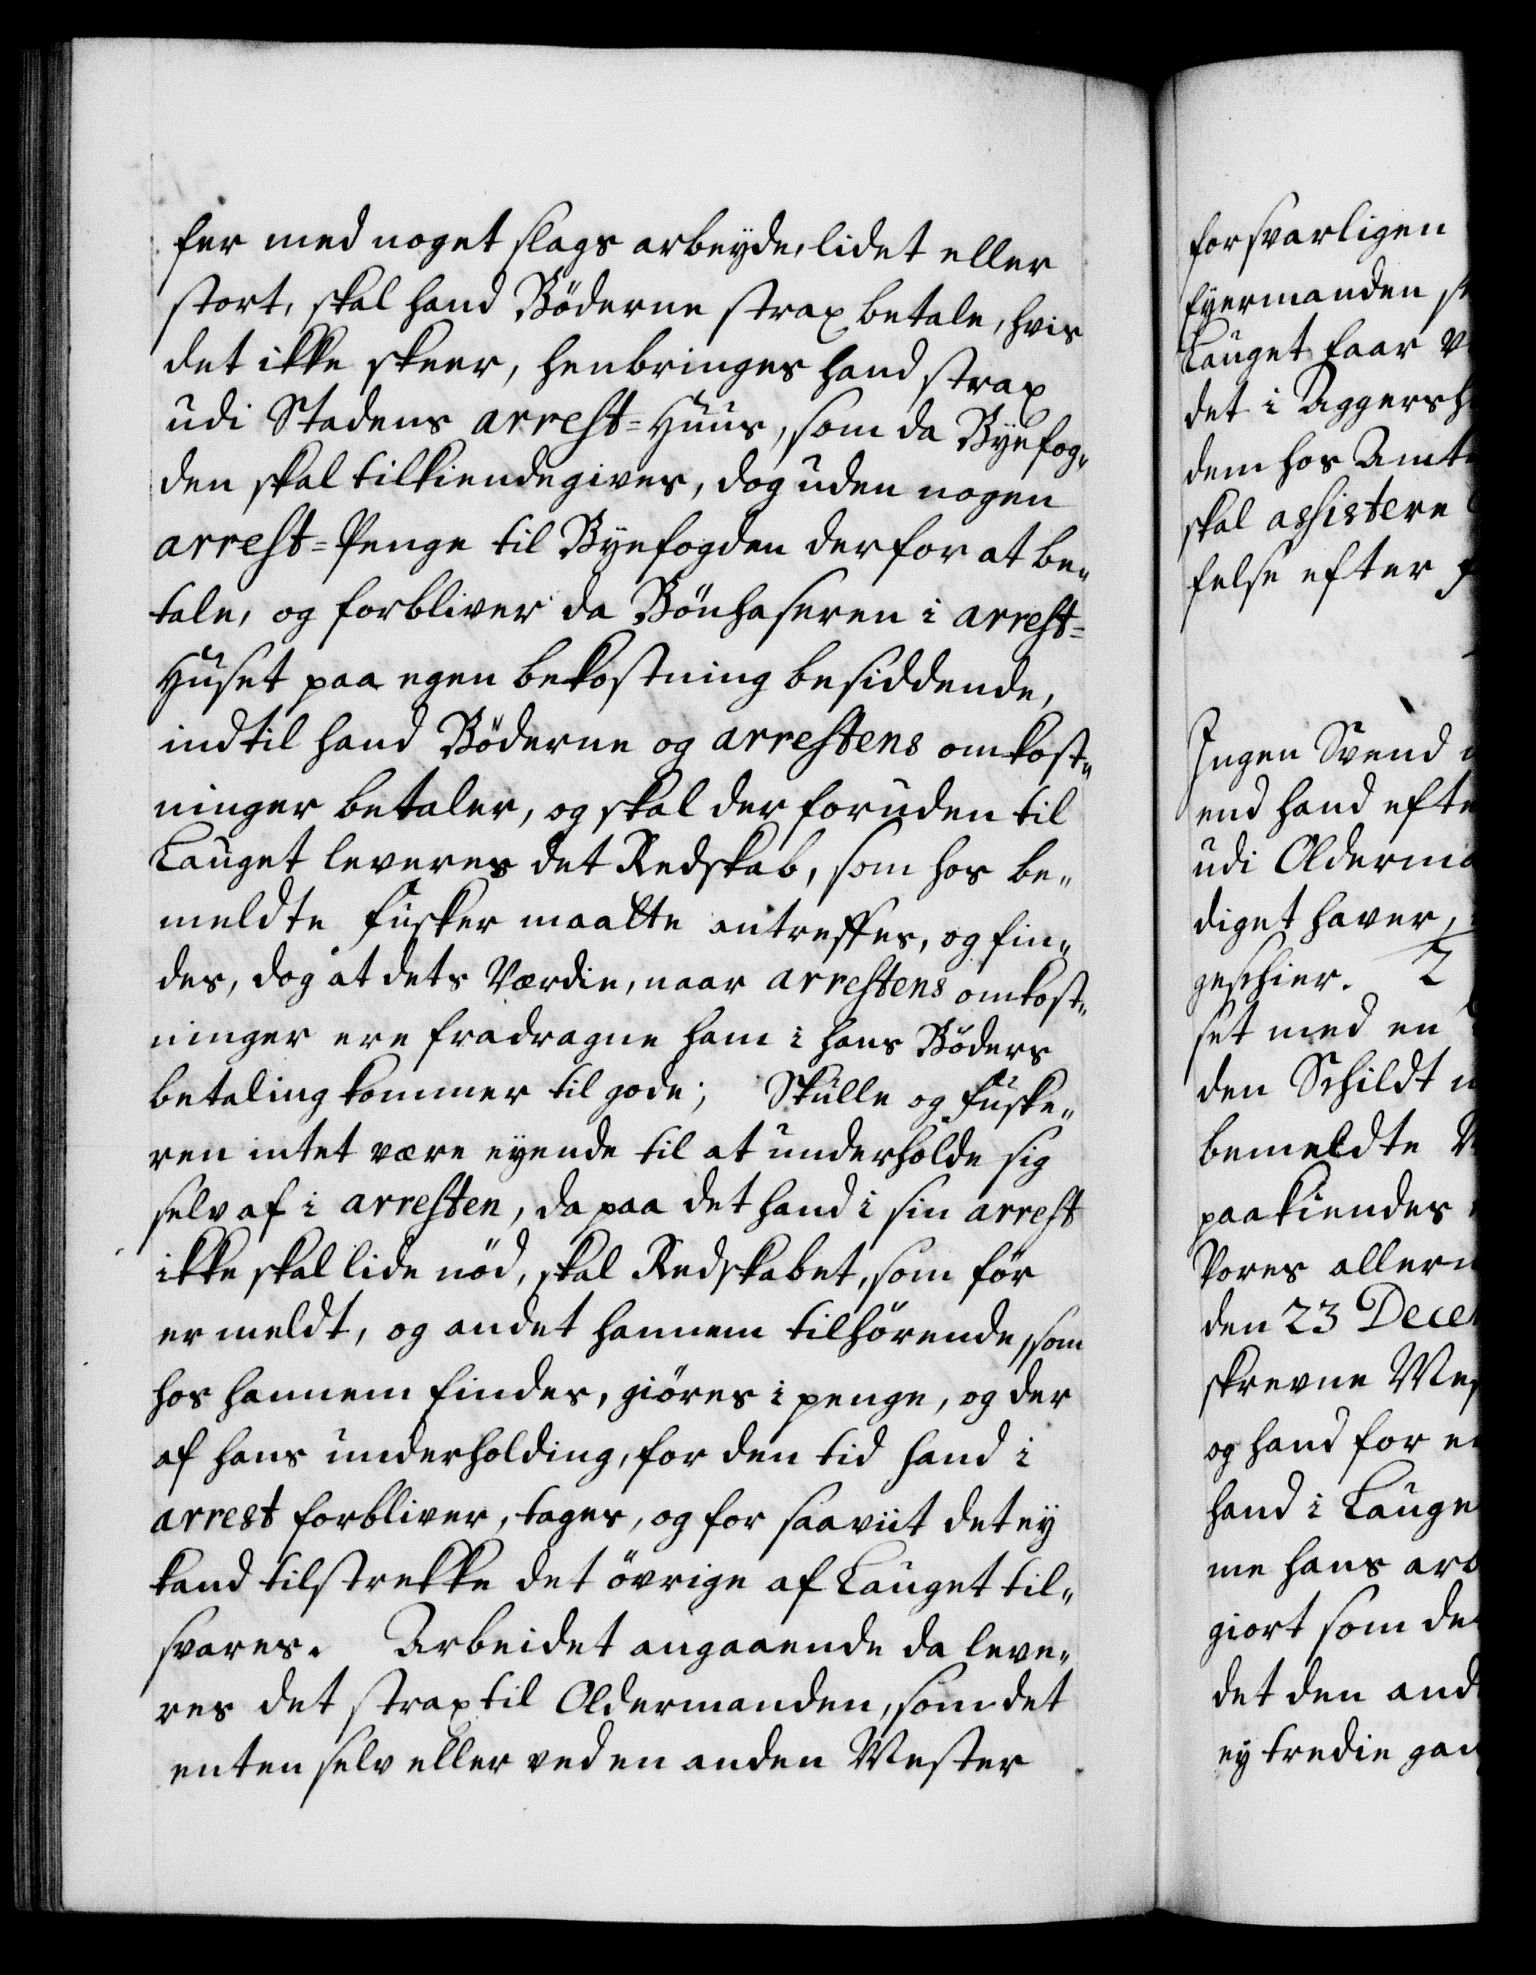 fer med noget slags arbeyde, lidet eller
stort, skal hand Böderne strax betale, hvis
det ikke skeer, henbringes hand strax
udi Stadens arrest=Huus, som da Byefog„
den skal tilkiendegives, dog uden nogen
arrest=Penge til Byefogden derfor at be„
tale, og forbliver da Bönhaseren i arrest=
Huset paa egen bekostning besiddende,
indtil hand Böderne og arrestens omkost„
ninger betaler, og skal der foruden til
Lauget leveres det Redskab, som hos be„
meldte fusker maatte antreffes, og fin„
des, dog at dets Værdie, naar arrestens omkost„
ninger ere fradragne ham i hans Böders
betaling kommer til gode; Skulle og fuske„
ren intet være eyende til at underholde sig
selv af i arresten, da paa det hand i sin arrest
ikke skal lide nöd, skal Redskabet, som för
er meldt, og andet hannem tilhörende, som
hos hannem findes, giöres i penge, og der
af hans underholding, for den tid hand i
arrest forbliver, tages, og for saaviit det ey
kand tilstrekke det övrige af Lauget til„
svares. Arbeidet angaaende da leve„
res det strax til Oldermanden, som det
enten selv eller ved en anden Mester
forsvarligen
Eyermanden
Lauget faar
det i Aggersh
dem hos Amt
skal assistere
felse efter
Ingen Svend
end hand efte
udi Olderma
diget haver,
geschier. 2
set med en
den Schildt
bemeldte
paakiendes
Vores allern
den 23 Decem
skrevne Mes
og hand for
hand i Lauge
me hans arb
giort som de
det den and
ey tredie gan